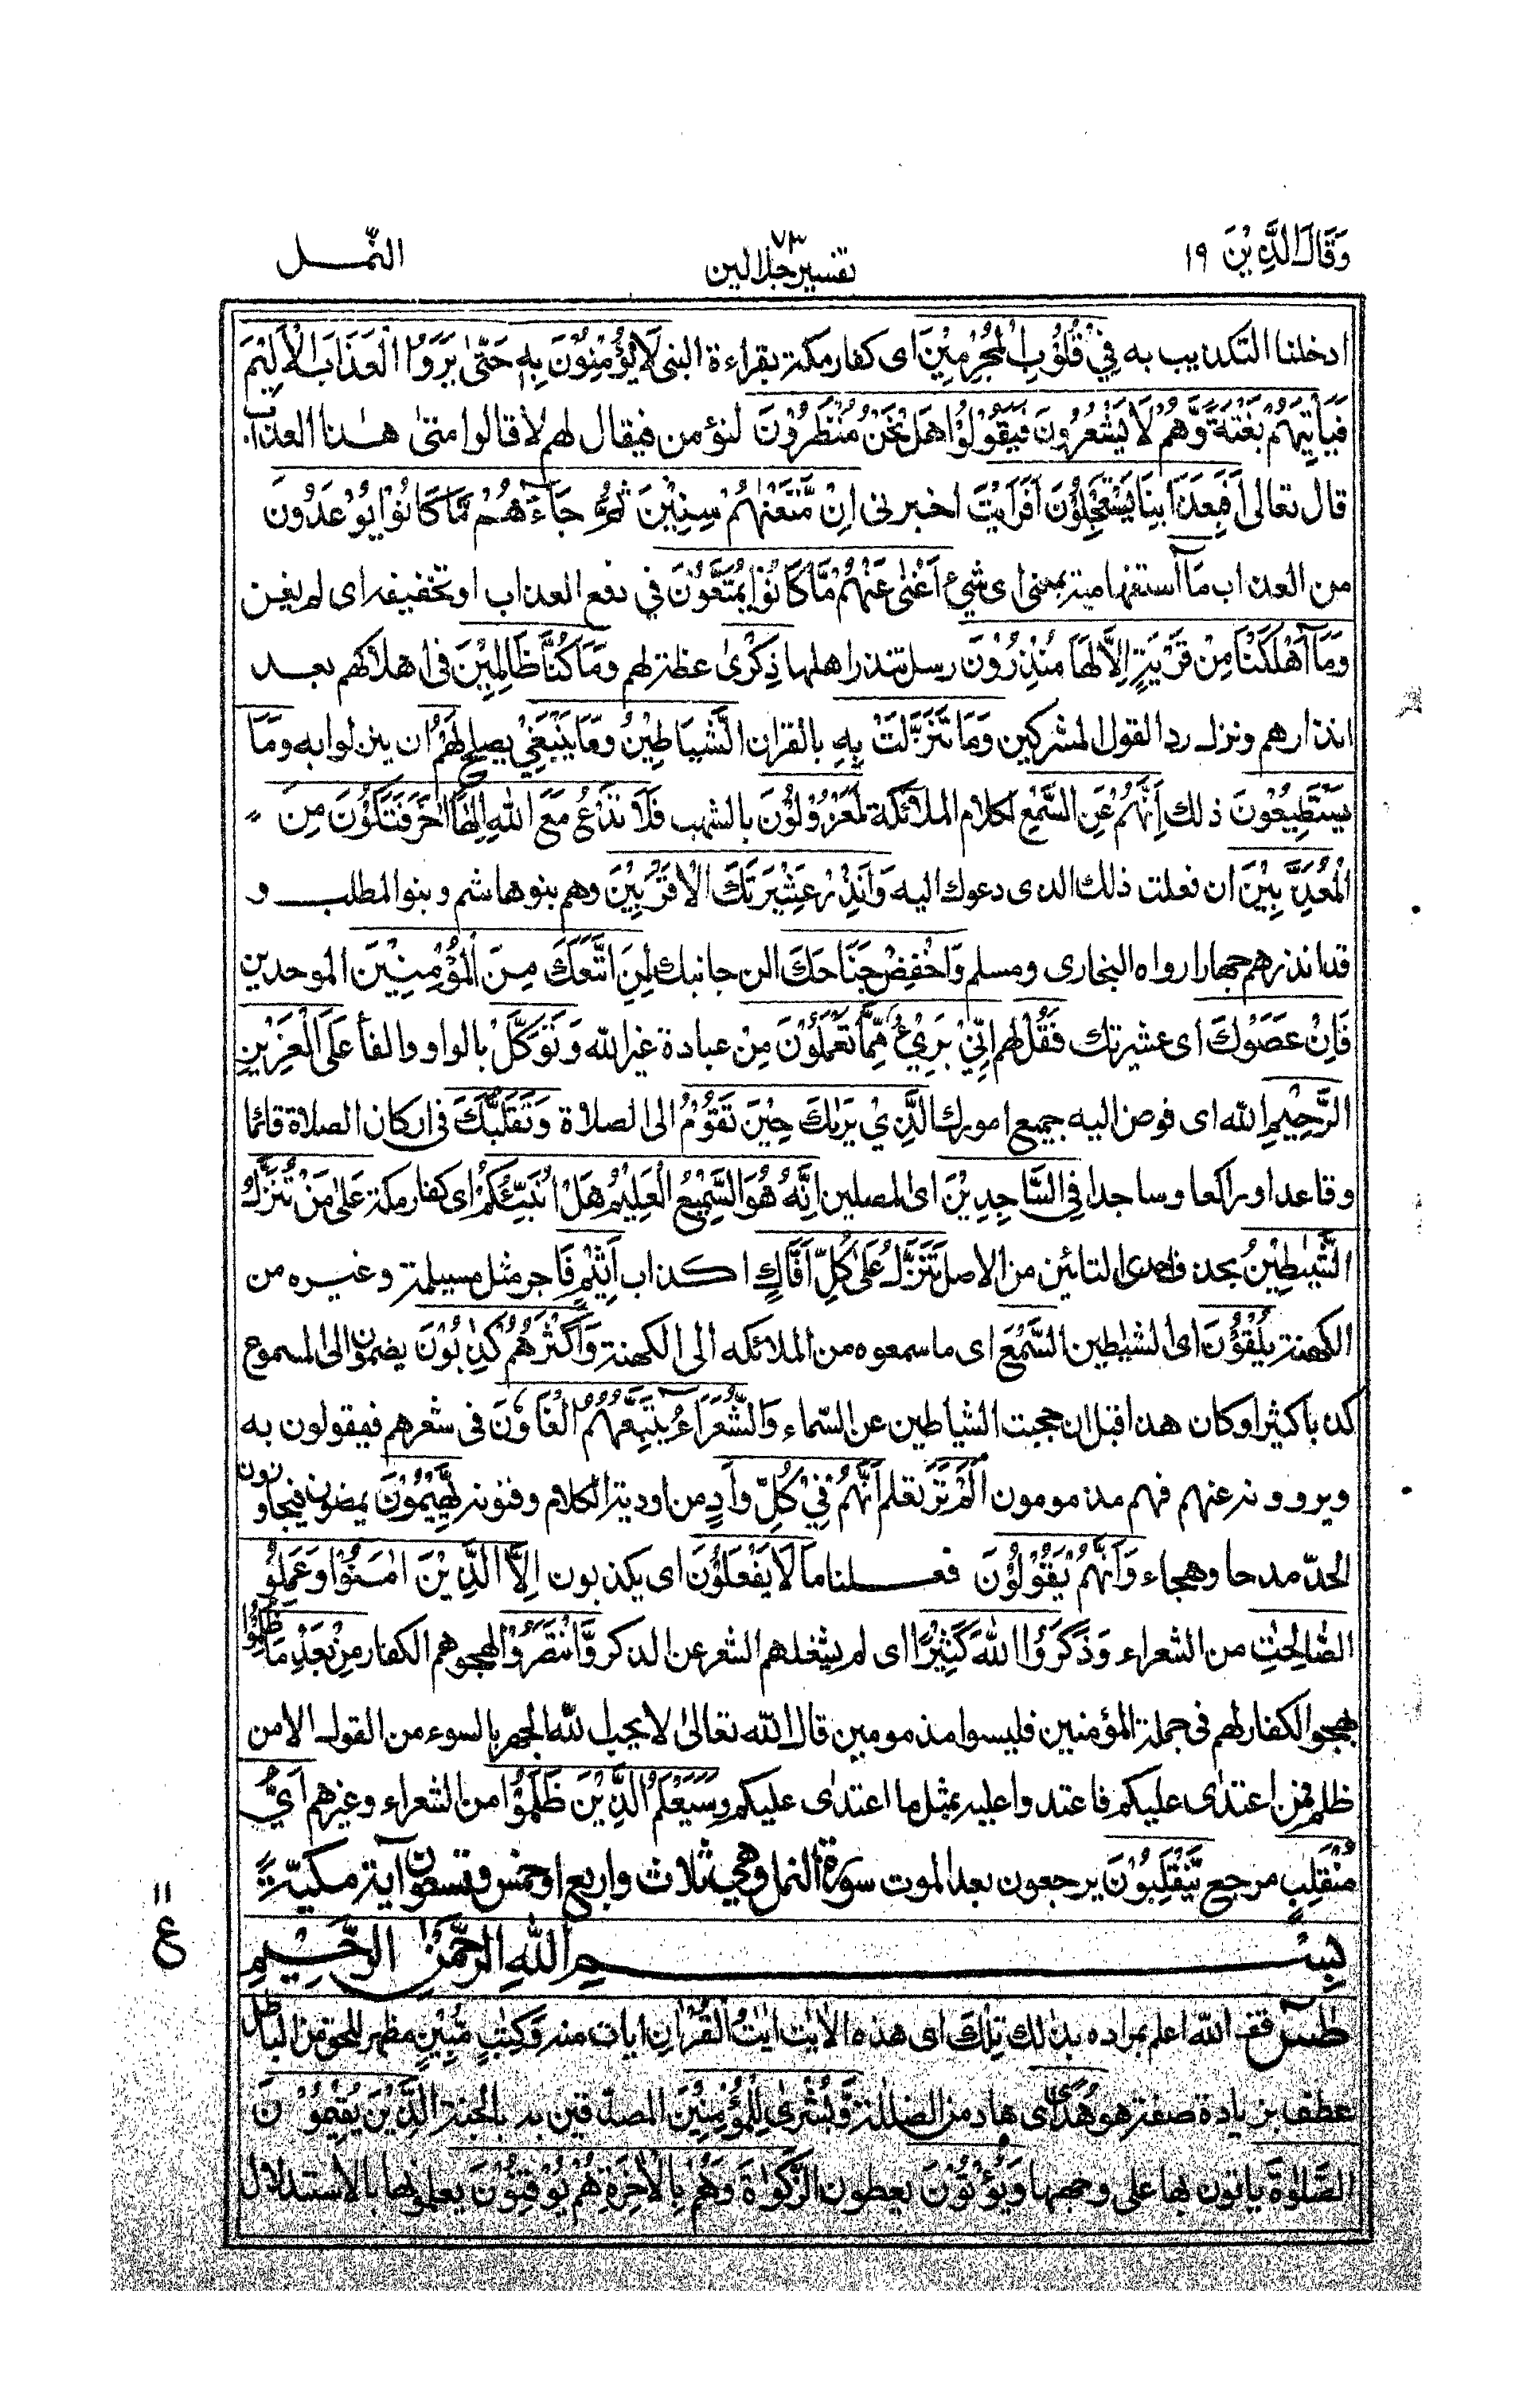 وَقَالَ الَّذِيْنَ ١٩
٧٣
تفسير جلالين
النّمل
ادخلنا التكذيب به فِيْ قُلُوْبِ الْمُجْرِمِيْنَ اى كفار مكة بقراءة النبى لَا يُؤْمِنُوْنَ بِهٖ حَتّٰى يَرَوُا الْعَذَابَ الْاَلِيْمَ
فَيَأْتِيَهُمْ بَغْتَةً وَّهُمْ لَا يَشْعُرُوْنَ فَيَقُوْلُوْا هَلْ نَحْنُ مُنْظَرُوْنَ لنؤمن فيقال لهم لا قالوا متىٰ هٰذا العذاب
قال تعالى اَفَبِعَذَابِنَا يَسْتَعْجِلُوْنَ اَفَرَاَيْتَ اخبرنى اِنْ مَّتَّعْنٰهُمْ سِنِيْنَ ثُمَّ جَآءَهُمْ مَّا كَانُوْا يُوْعَدُوْنَ
من العذاب مَآ استفهامية بمعنى اى شيء اَغْنٰى عَنْهُمْ مَّا كَانُوْا يُمَتَّعُوْنَ في دفع العذاب او تخفيفه اى لم يغن
وَمَآ اَهْلَكْنَا مِنْ قَرْيَةٍ اِلَّا لَهَا مُنْذِرُوْنَ رسل تنذر اهلها ذِكْرٰى عظة لهم وَمَا كُنَّا ظَالِمِيْنَ فى اهلاكهم بعد
انذارهم ونزل ردا لقول المشركين وَمَا تَنَزَّلَتْ بِهِ بالقران الشَّيَاطِيْنُ وَمَا يَنْبَغِيْ يصلح لَهُمْ ان ينزلوا به وَمَا
يَسْتَطِيْعُوْنَ ذلك اِنَّهُمْ عَنِ السَّمْعِ لكلام الملائكة لَمَعْزُوْلُوْنَ بالشهب فَلَا تَدْعُ مَعَ اللهِ اِلٰهًا اٰخَرَ فَتَكُوْنَ مِنَ
الْمُعَذَّبِيْنَ ان فعلت ذلك الذى دعوك اليه وَاَنْذِرْ عَشِيْرَتَكَ الْاَقْرَبِيْنَ وهم بنو هاشم وبنو المطلب و
قد انذرهم جهارا رواه البخارى ومسلم وَاخْفِضْ جَنَاحَكَ الن جانبك لِمَنِ اتَّبَعَكَ مِنَ الْمُؤْمِنِيْنَ الموحدين
فَاِنْ عَصَوْكَ اى عشيرتك فَقُلْ لهم اِنِّيْ بَرِيْءٌ مِّمَّا تَعْمَلُوْنَ مِنْ عبادة غير الله وَتَوَكَّلْ بالواو والفأ عَلَى الْعَزِيْزِ
الرَّحِيْمِ الله اى فوض اليه جميع امورك الَّذِيْ يَرٰىكَ حِيْنَ تَقُوْمُ الى الصلاة وَتَقَلُّبَكَ فى اركان الصلاة قائما
وقاعدا وراكعا وساجدا فِي السَّاجِدِيْنَ اى المصلين اِنَّهٗ هُوَ السَّمِيْعُ الْعَلِيْمُ هَلْ اُنَبِّئُكُمْ اى كفار مكة عَلٰى مَنْ تَنَزَّلُ
الشَّيٰطِيْنُ بحذف احدى التائين من الاصل تَنَزَّلُ عَلٰى كُلِّ اَفَّاكٍ كذاب اَثِيْمٍ فَاجر مثل مسيلمة وغيره من
الكهنة يُلْقُوْنَ اى الشيٰطين السَّمْعَ اى ما سمعوه من الملائكه الى الكهنة وَاَكْثَرُهُمْ كٰذِبُوْنَ يضمون الى المسموع
كذبا كثيرا وكان هذا قبل ان حجبت الشياطين عن السّماء وَالشُّعَرَآءُ يَتَّبِعُهُمُ الْغَاوٗنَ فى شعرهم فيقولون به
ويروونه عنهم فهم مذمومون اَلَمْ تَرَ تعلم اَنَّهُمْ فِيْ كُلِّ وَادٍ من اودية الكلام وفنونه يَّهِيْمُوْنَ يمضون فيتجاوزون
الحدّ مدحا وهجاء وَاَنَّهُمْ يَقُوْلُوْنَ فعلنا مَا لَا يَفْعَلُوْنَ اى يكذبون اِلَّا الَّذِيْنَ اٰمَنُوْا وَعَمِلُوا
الصّٰلِحٰتِ من الشعراء وَذَكَرُوا اللهَ كَثِيْرًا اى لم يشغلهم الشعر عن الذكر وَّانْتَصَرُوْا بهجوهم الكفار مِنْ بَعْدِ مَا ظُلِمُوْا
بهجو الكفار لهم فى جملة المؤمنين فليسوا مذمومين قال الله تعالىٰ لا يحب الله الجهر بالسوء من القول الا من
ظلم فمن اعتدى عليكم فاعتدوا عليه بمثل ما اعتدى عليكم وَسَيَعْلَمُ الَّذِيْنَ ظَلَمُوْا من الشعراء وغيرهم اَيَّ
مُنْقَلَبٍ مرجع يَّنْقَلِبُوْنَ يرجعون بعد الموت سورة النمل وهي ثلاث واربع او خمس وتسعون آية مكيّة
بِسْمِ اللهِ الرَّحْمٰنِ الرَّحِيْمِ
١١
ع
طٰسٓ قف الله اعلم بمراده بذلك تِلْكَ اى هذه الاٰيات اٰيٰتُ الْقُرْاٰنِ ايات منه وَكِتٰبٍ مُّبِيْنٍ مظهر للحق من الباطل
عطف بزيادة صفة هو هُدًى اى هاد من الضللة وَّبُشْرٰى لِلْمُؤْمِنِيْنَ المصدقين به بالجنة الَّذِيْنَ يُقِيْمُوْنَ
الصَّلٰوةَ ياتون بها على وجهها وَيُؤْتُوْنَ يعطون الزَّكٰوةَ وَهُمْ بِالْاٰخِرَةِ هُمْ يُوْقِنُوْنَ يعلمونها بالاستدلال